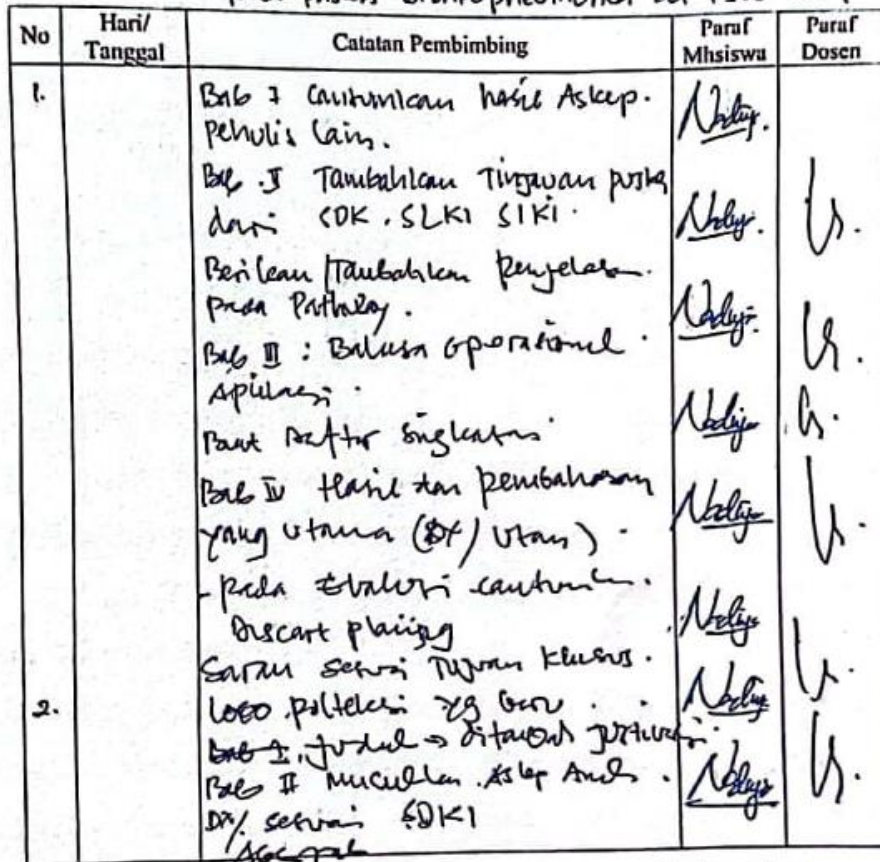 No Hari/ Tanggal Catatan Pembimbing Paraf Mhsiswa Paraf Dosen
1. Bab I Cantumkan hasil Askep.
Penulis lain.
Bab II Tambahkan Tinjauan pustaka
dari SDKI SLKI SIKI.
Berikan / Tambahkan Penjelasan
pada Pathway.
Bab III : Bahasa operasional
Aplikasi.
Buat Daftar Singkatan
Bab IV Hasil dan pembahasan
yang utama (DX/ utama).
- pada Evaluasi cantumkan.
Discart planing
Saran sesuai Tujuan Khusus.
2. Logo poltekes yg baru.
Bab I. judul → ditambah
Bab II Munculkan Askep Anak.
DX/ sesuai SDKI